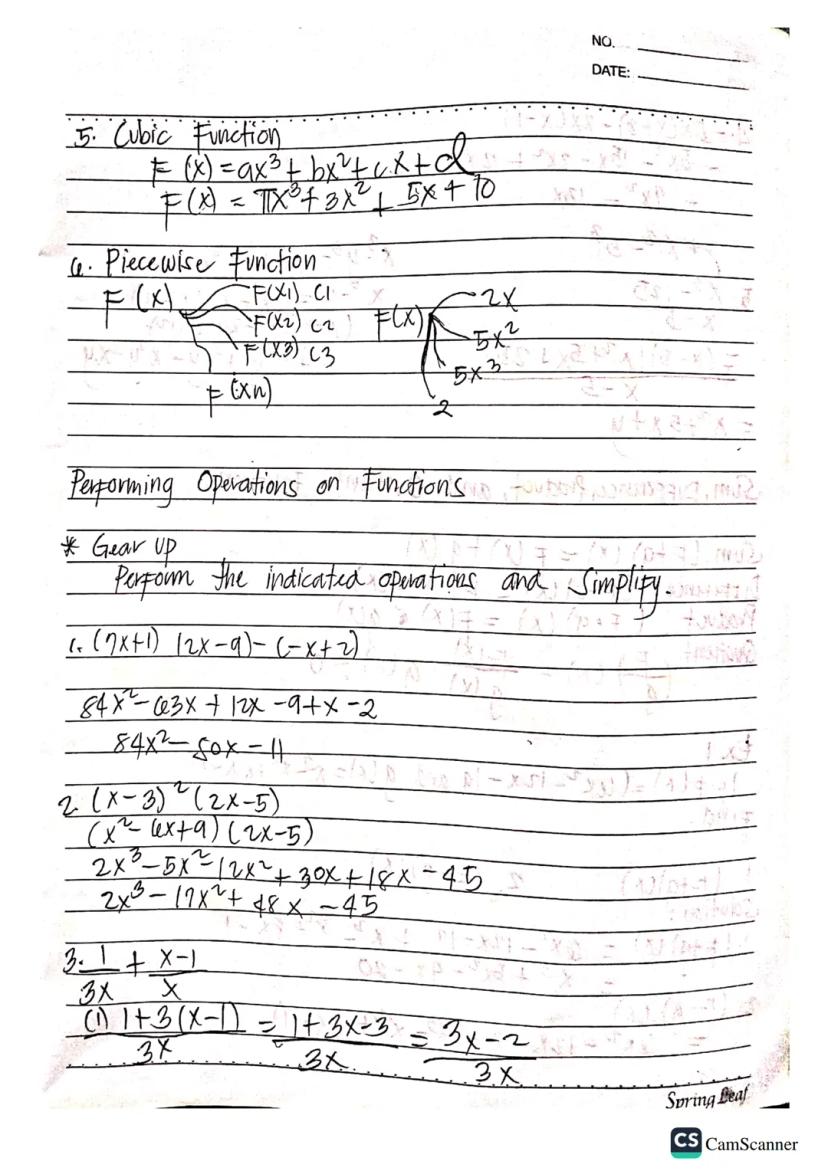 NO.
DATE:
5. Cubic Function
F (x) = ax³ + bx² + cx + d
F(x) = πx³ + 3x² + 5x + 10
6. Piecewise Function
F (x) F(x1) C1 F(x) 2x
F(x2) C2 5x²
F(x3) C3 5x³
F(xn) 2
Performing Operations on Functions
* Gear up
Perform the indicated operations and Simplify.
1. (7x+1) (2x-9) - (-x+2)
84x² - 63x + 12x - 9 + x - 2
84x² - 50x - 11
2. (x-3)² (2x-5)
(x² - 6x+9) (2x-5)
2x³ - 5x² - 12x² + 30x + 18x - 45
2x³ - 17x² + 48x - 45
3. 1/3x + x-1/x
(1) 1+3(x-1)/3x = 1+3x-3/3x = 3x-2/3x
Spring Leaf
CS CamScanner